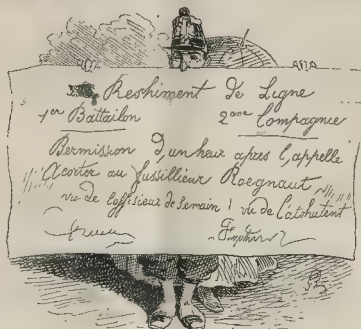 Reshiment de Ligne
1er Battailon 2eme Compagnie
Bermission d'un heur apres l'appelle
Acorter au fussillieur Roegnaut
vu de loffisieux de semain ! vu de l'atchutent